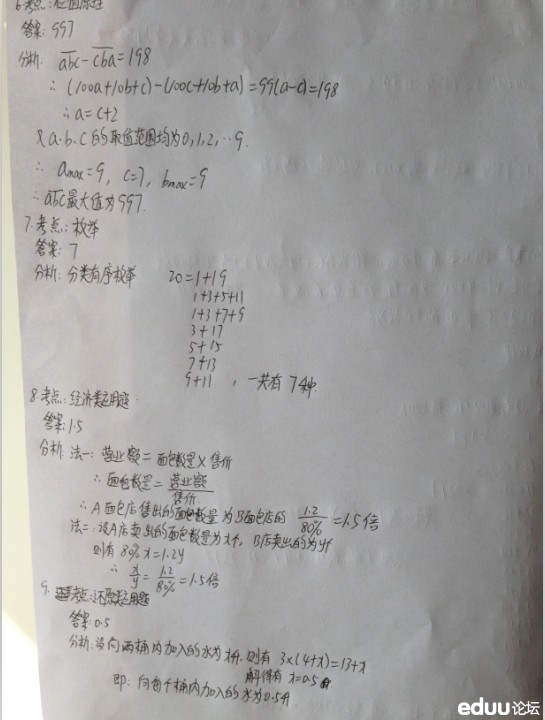 6.考点:位值原理
答案: 997
分析: abc - cba = 198
∴ (100a+10b+c)-(100c+10b+a)=99(a-c)=198
∴ a=c+2
又a.b.c的取值范围均为0,1,2,…9.
∴ amax=9, c=7, bmax=9
∴ abc最大值为997.
7.考点:枚举
答案: 7
分析: 分类有序枚举 20=1+19
1+3+5+11
1+3+7+9
3+17
5+15
7+13
9+11 , 一共有7种.
8.考点:经济类应用题
答案:1.5
分析: 法一: 营业额=面包数量×售价
∴ 面包数量=营业额/售价
∴ A面包店售出的面包数量为B面包店的 1.2/80%=1.5倍
法二:设A店卖出的面包数量为x个, B店卖出的为y个
则有 80%x=1.2y
∴ x/y=1.2/80%=1.5倍
9. 考点:还原类应用题
答案:0.5
分析:设向两桶内加入的水为x升,则有 3×(4+x)=13+x
解得有 x=0.5
即: 向每个桶内加入的水为0.5升
eduu论坛